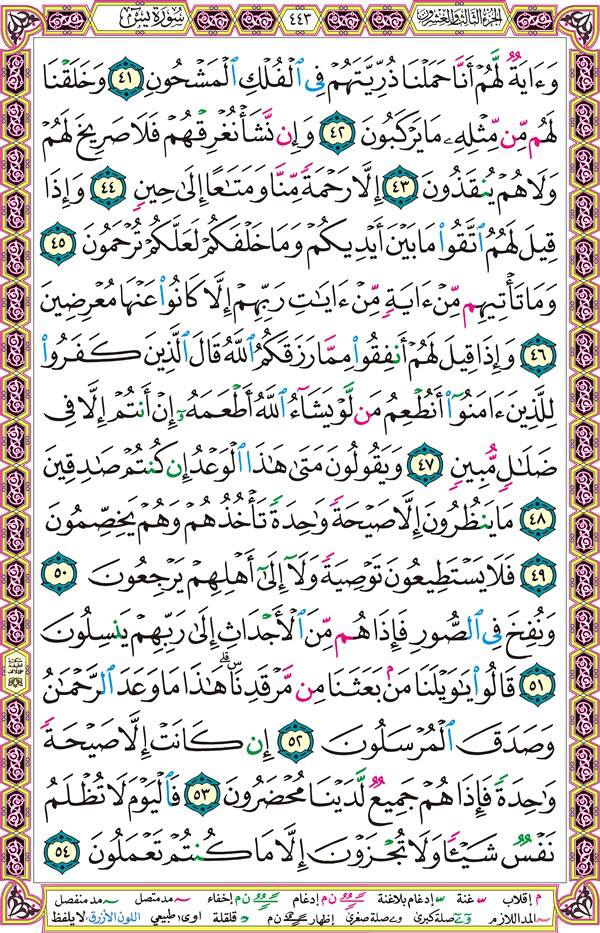 الجزء الثالث والعشرون
٤٤٣
سُورَةُ يسٓ
وَءَايَةٌ لَّهُمْ أَنَّا حَمَلْنَا ذُرِّيَّتَهُمْ فِى الْفُلْكِ الْمَشْحُونِ ٤١ وَخَلَقْنَا
لَهُم مِّن مِّثْلِهِۦ مَا يَرْكَبُونَ ٤٢ وَإِن نَّشَأْ نُغْرِقْهُمْ فَلَا صَرِيخَ لَهُمْ
وَلَا هُمْ يُنقَذُونَ ٤٣ إِلَّا رَحْمَةً مِّنَّا وَمَتَاعًا إِلَىٰ حِينٍ ٤٤ وَإِذَا
قِيلَ لَهُمُ اتَّقُوا مَا بَيْنَ أَيْدِيكُمْ وَمَا خَلْفَكُمْ لَعَلَّكُمْ تُرْحَمُونَ ٤٥
وَمَا تَأْتِيهِم مِّنْ ءَايَةٍ مِّنْ ءَايَاتِ رَبِّهِمْ إِلَّا كَانُوا عَنْهَا مُعْرِضِينَ
٤٦ وَإِذَا قِيلَ لَهُمْ أَنفِقُوا مِمَّا رَزَقَكُمُ اللَّهُ قَالَ الَّذِينَ كَفَرُوا
لِلَّذِينَ ءَامَنُوا أَنُطْعِمُ مَن لَّوْ يَشَاءُ اللَّهُ أَطْعَمَهُۥ إِنْ أَنتُمْ إِلَّا فِى
ضَلَالٍ مُّبِينٍ ٤٧ وَيَقُولُونَ مَتَىٰ هَٰذَا الْوَعْدُ إِن كُنتُمْ صَادِقِينَ
٤٨ مَا يَنظُرُونَ إِلَّا صَيْحَةً وَاحِدَةً تَأْخُذُهُمْ وَهُمْ يَخِصِّمُونَ
٤٩ فَلَا يَسْتَطِيعُونَ تَوْصِيَةً وَلَا إِلَىٰ أَهْلِهِمْ يَرْجِعُونَ ٥٠
وَنُفِخَ فِى الصُّورِ فَإِذَا هُم مِّنَ الْأَجْدَاثِ إِلَىٰ رَبِّهِمْ يَنسِلُونَ
٥١ قَالُوا يَاوَيْلَنَا مَن بَعَثَنَا مِن مَّرْقَدِنَا هَٰذَا مَا وَعَدَ الرَّحْمَٰنُ
وَصَدَقَ الْمُرْسَلُونَ ٥٢ إِن كَانَتْ إِلَّا صَيْحَةً
وَاحِدَةً فَإِذَا هُمْ جَمِيعٌ لَّدَيْنَا مُحْضَرُونَ ٥٣ فَالْيَوْمَ لَا تُظْلَمُ
نَفْسٌ شَيْئًا وَلَا تُجْزَوْنَ إِلَّا مَا كُنتُمْ تَعْمَلُونَ ٥٤
م إقلاب غنة إدغام بلاغنة ن م إدغام ن م إخفاء مد متصل مد منفصل
المد اللازم صلة كبرى صلة صغرى إظهار ن م قلقلة اوى: طبيعي اللون الأزرق: لا يلفظ